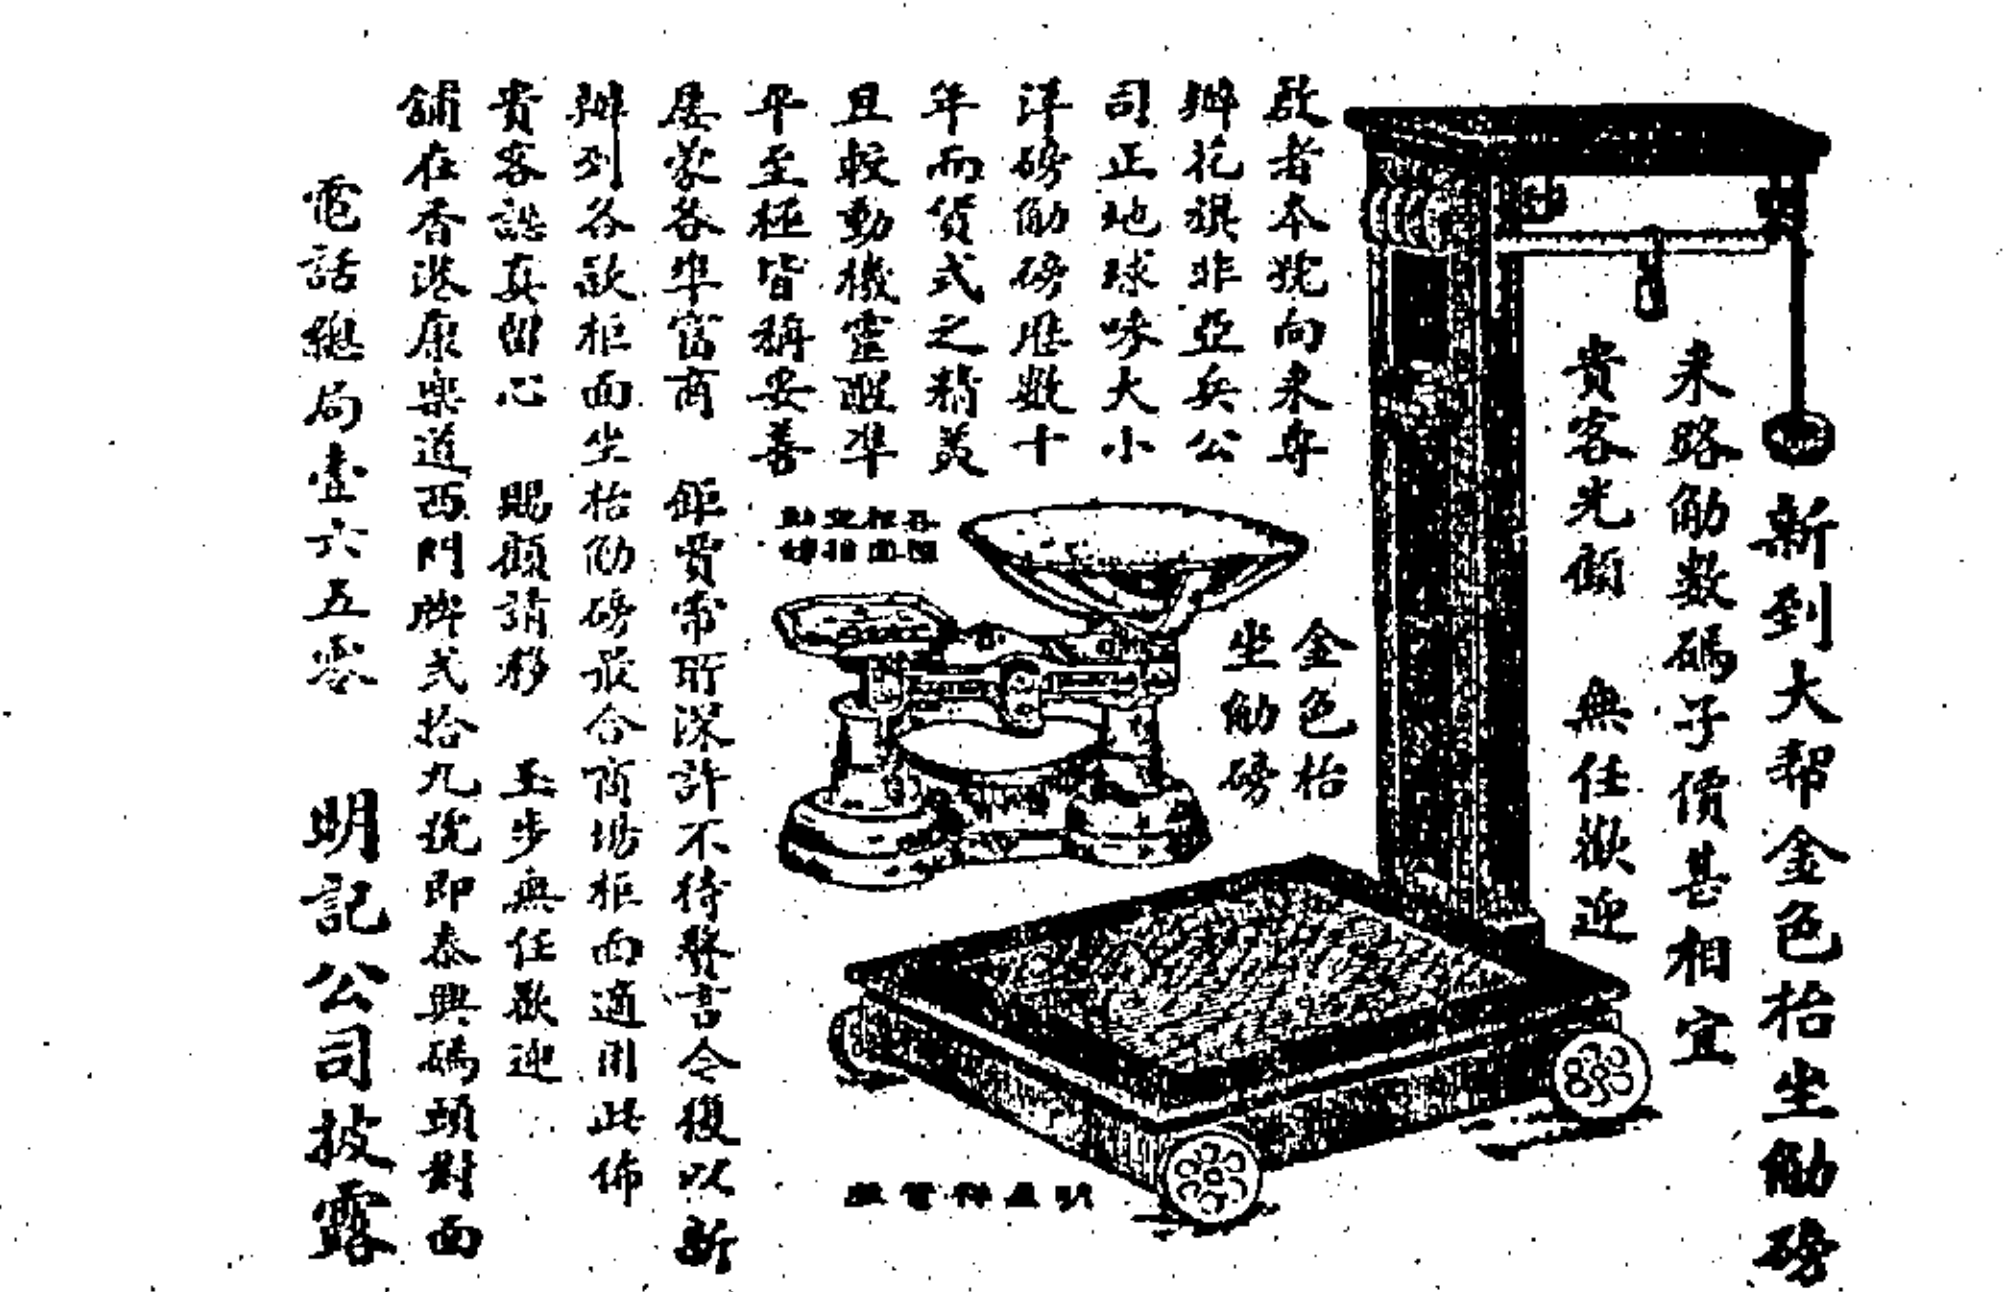 新到大帮金色枱坐觔磅
来路觔數碼子價甚相宜
貴客光顧 無任歡迎
啟者本號向来專
辦花旗非亞兵公
司正地球嘜大小
洋磅觔磅歷數十
年而貨式之精美
且較動機靈醒準
平至極皆稱妥善
屡蒙各埠富商 鉅賈常所深許不待贅言今復以新
辦到各欵柜面坐枱觔磅最合商塲柜面適用此佈
貴客認真留心 賜顧請移 玉步無任歡迎
舖在香港康樂道西門牌弍拾九號即泰興碼頭對面
電話總局壹六五零 明記公司披露
金色枱
坐觔磅